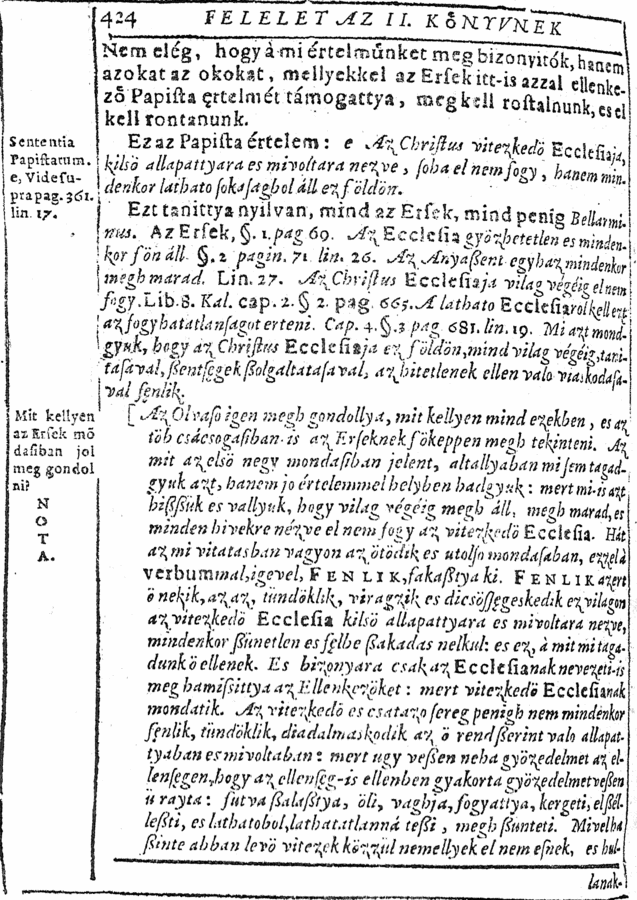 424 FELELET AZ II. KÖNYVNEK
Nem elég, hogy à mi értelmünket meg bizonyitók, hanem
azokat az okokat, mellyekkel az Ersek itt-is azzal ellenke-
zö Papista ertelmét támogattya, meg kell rostalnunk, es el
kell rontanunk.
Sententia
Papistarum.
e, Vide su-
pra pag. 361.
lin. 17.
Ez az Papista értelem: e Az Christus vitezkedö Ecclesiaja,
kilsö allapattyara es mivoltara nezve, soha el nem fogy, hanem min-
denkor lathato sokasagbol áll ez földön.
Ezt tanittya nyilvan, mind az Ersek, mind penig Bellarmi-
nus. Az Ersek, §. 1. pag 69. Az Ecclesia gyözhetetlen es minden-
kor fön áll. §. 2 pagin. 71. lin. 26. Az Anyaßent egyhaz mindenkor
megh marad. Lin. 27. Az Christus Ecclesiaja vilag végéig el nem
fogy. Lib. 8. Kal. cap. 2. § 2. pag. 665. A lathato Ecclesiarol kell ezt
az fogyhatatlansagot erteni. Cap. 4. §. 3 pag. 681. lin. 19. Mi azt mond-
gyuk, hogy az Christus Ecclesiaja ez földön, mind vilag végéig, tani-
tasaval, ßentsegek ßolgaltatasaval, az hitetlenek ellen valo viaskodasa-
val fenlik.
Mit kellyen
az Ersek mō
dasiban jol
meg gondol
ni?
N
O
T
A.
[ Az Olvaso igen megh gondollya, mit kellyen mind ezekben, es az
töb csácsogasiban-is az Erseknek fökeppen megh tekinteni. Az
mit az elsö negy mondasiban jelent, altallyaban mi sem tagad-
gyuk azt, hanem jo értelemmel helyben hadgyuk: mert mi-is azt
hißßük es vallyuk, hogy vilag végéig megh áll, megh marad, es
minden hivekre nézve el nem fogy az vitezkedö Ecclesia. Hát
az mi vitatasban vagyon az ötödik es utolso mondasaban, ezzel à
verbummal, igevel, FENLIK, fakaßtya ki. FENLIK azert
ö nekik, az az, tündöklik, viragzik es dicsösségeskedik ez vilagon
az vitezkedö Ecclesia kilsö allapattyara es mivoltara nezve,
mindenkor ßünetlen es felbe ßakadas nelkul: es ez, à mit mi taga-
dunk ö ellenek. Es bizonyara csak az Ecclesianak nevezeti-is
meg hamissittya az Ellenkezöket: mert vitezkedö Ecclesianak
mondatik. Az vitezkedö es csatazo sereg penigh nem mindenkor
fenlik, tündöklik, diadalmaskodik az ö rend ßerint valo allapat-
tyaban es mivoltaban: mert ugy veßen neha gyözedelmet az el-
lensegen, hogy az ellenség-is ellenben gyakorta gyözedelmet veßen
ü rayta: futva ßalaßtya, öli, vaghja, fogyattya, kergeti, el ßél-
leßti, es lathatobol, lathatatlanná teßi, megh ßunteti. Mivel ha
ßinte abban levö vitezek közzül nemellyek el nem esnek, es hul-
lanak-